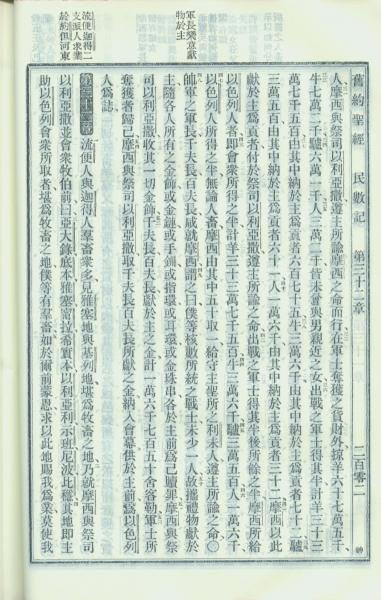 舊約聖經 民數記 第三十二章 二百零二
人、摩西與祭司以利亞撒遵主所諭摩西之命而行、在軍士奪獲之貨財外、掠羊六十七萬五千、
牛七萬二千、驢六萬一千、人三萬二千、皆未嘗與男親近之女、出戰之軍士得其半、計羊三十三
萬七千五百、由其中納於主爲貢者、六百七十五、牛三萬六千、由其中納於主爲貢者七十二、驢
三萬五百、由其中納於主爲貢者六十一、人一萬六千、由其中納於主爲貢者三十二、摩西以此
獻於主爲貢者、付於祭司以利亞撒、遵主所諭之命、出戰之軍士得其半後、所餘之半、摩西所給
以色列人者、即會衆所得之半、計羊三十三萬七千五百、牛三萬六千、驢三萬五百、人一萬六千、
以色列人所得之半、無論人畜、摩西由其中五十取一、給守主聖所之利未人、遵主所諭之命、○
帥軍之軍長千夫長百夫長、咸就摩西、謂之曰、僕等核數所統之戰士、未少一人、故攜禮物獻於
主、隨各人所有之金飾、或金鏈、或手釧、或指環、或耳環、或金珠串、各於主前爲己贖罪、摩西與祭
司以利亞撒收其一切金飾、千夫長百夫長獻於主之金、計一萬六千七百五十舍客勒、軍士所
奪獲者歸己、摩西與祭司以利亞撒、取千夫長百夫長所獻之金、納入會幕、供於主前、爲以色列
人爲誌、
第三十二章 流便人與迦得人羣畜衆多、見雅塞地與基列地、堪爲牧畜之地、乃就摩西與祭司
以利亞撒並會衆牧伯前曰、亞大錄、底本、雅塞、密拉、希實本、以利亞利、示班、尼波、比穩、其地即主
助以色列會衆所取者、堪爲牧畜之地、僕等有羣畜、如於爾前蒙恩、求以此地賜我爲業、莫使我
軍長樂意獻
物於主
流便迦得二
支派人求業
於約但河東